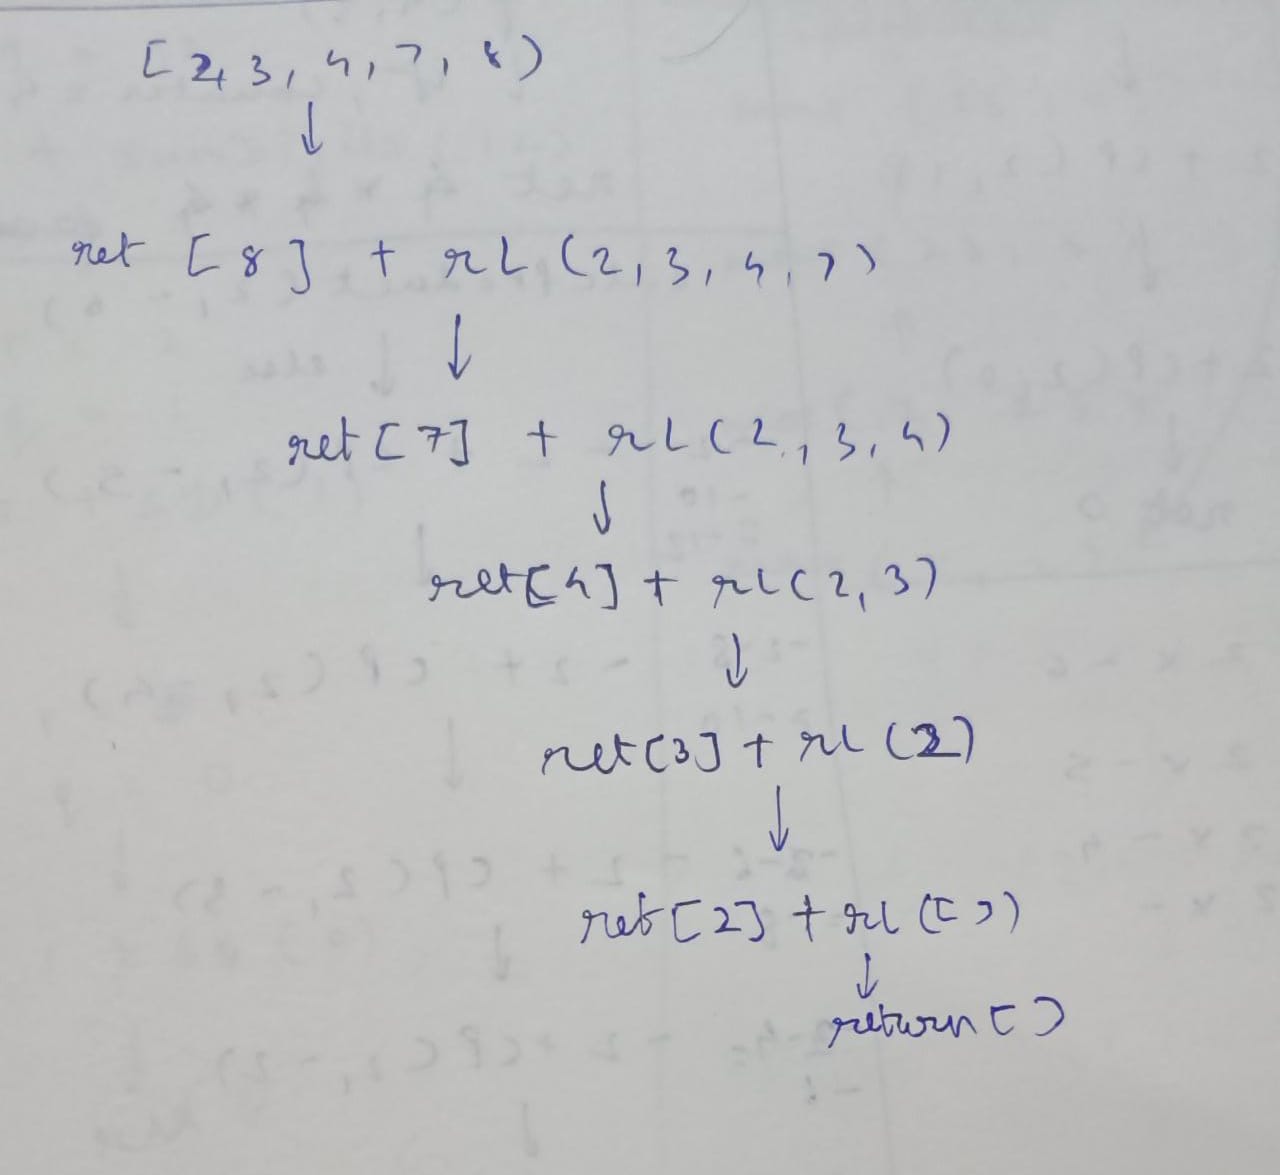 [2, 3, 4, 7, 8)
↓
ret [8] + rL (2, 3, 4, 7)
↓
ret [7] + rL (2, 3, 4)
↓
ret [4] + rL (2, 3)
↓
ret [3] + rL (2)
↓
ret [2] + rL ([ ])
↓
return [ ]